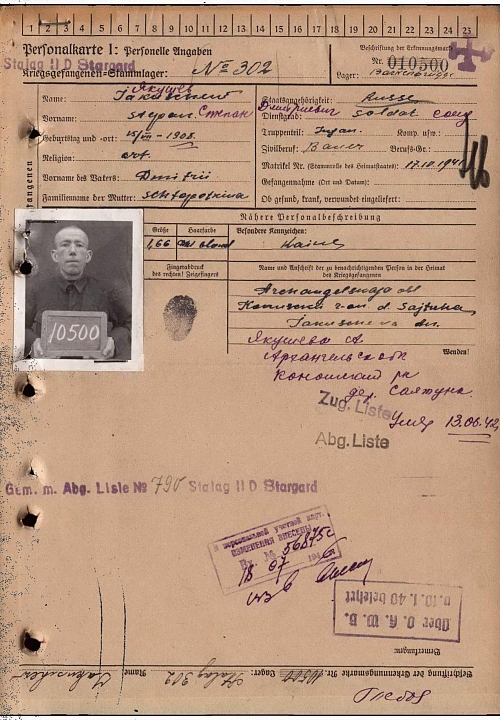 1 2 3 4 5 6 7 8 9 10 11 12 13 14 15 16 17 18 19 20 21 22 23 25
Personalkarte I: Personelle Angaben
Beschriftung der Erkennungsmarke
Stalag II D Stargard
Nr. 010500
Kriegsgefangenen-Stammlager: No 302
Lager:
Якушев
Name:
Staatsangehörigkeit: Russe
Vorname: Stepan Степан
Дмитриевич
Dienstgrad: Soldat солд
Geburtstag und -ort: 1908.
Truppenteil: Komp. usw.:
Religion: ort.
Zivilberuf: Bauer Berufs-Gr.:
Vorname des Vaters: Dmitrii
Matrikel Nr. (Stammrolle des Heimatstaates): 17.10.194
Gefangennahme (Ort und Datum):
Familienname der Mutter:
Ob gesund, krank, verwundet eingeliefert:
Nähere Personalbeschreibung
Größe Haarfarbe Besondere Kennzeichen:
1,66 blond Keine
Fingerabdruck des rechten! Zeigefingers
Name und Anschrift der zu benachrichtigenden Person in der Heimat
des Kriegsgefangenen
10500
Archangelskaja obl
d. Sajtuna
Якушева А
Wenden!
Архангельской обл
Коношский рн
дер. Саятуна
Zug. Liste
умер 13.06.42
Abg. Liste
Gem. m. Abg. Liste № 790 Stalag II D Stargard
В персональной учетной карт.
ИЗМЕНЕНИЯ ВНЕСЕНЫ
Вх. № 56875с
18 07 194 6
Über O. K. W. B.
v. 10. 1. 40 belehrt
Bemerkungen:
Beschriftung der Erkennungsmarke Nr. 10500 Lager: Stalag 302 Name